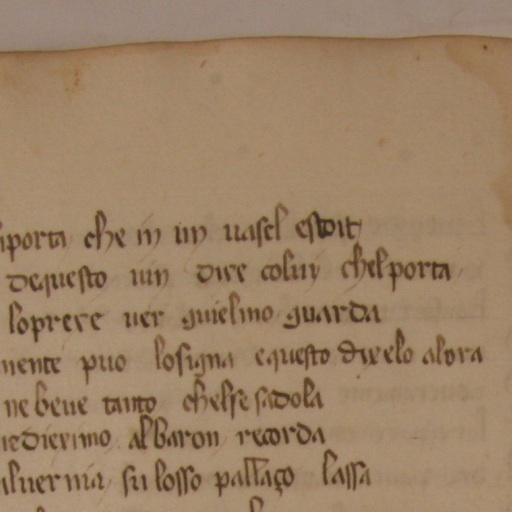 porta che in un uasel estoit
dequesto uin dire coluy chelporta
loprere uer guielmo guarda
mente puo losigna equesto dixelo alora
ne beue tanto chelse sadola
ediremo albaron recorda
su losso pallaço lassa